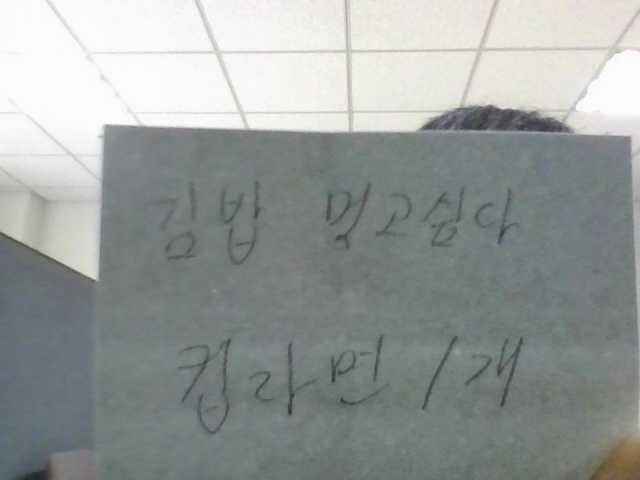 김밥 먹고싶다
컵라면 1개